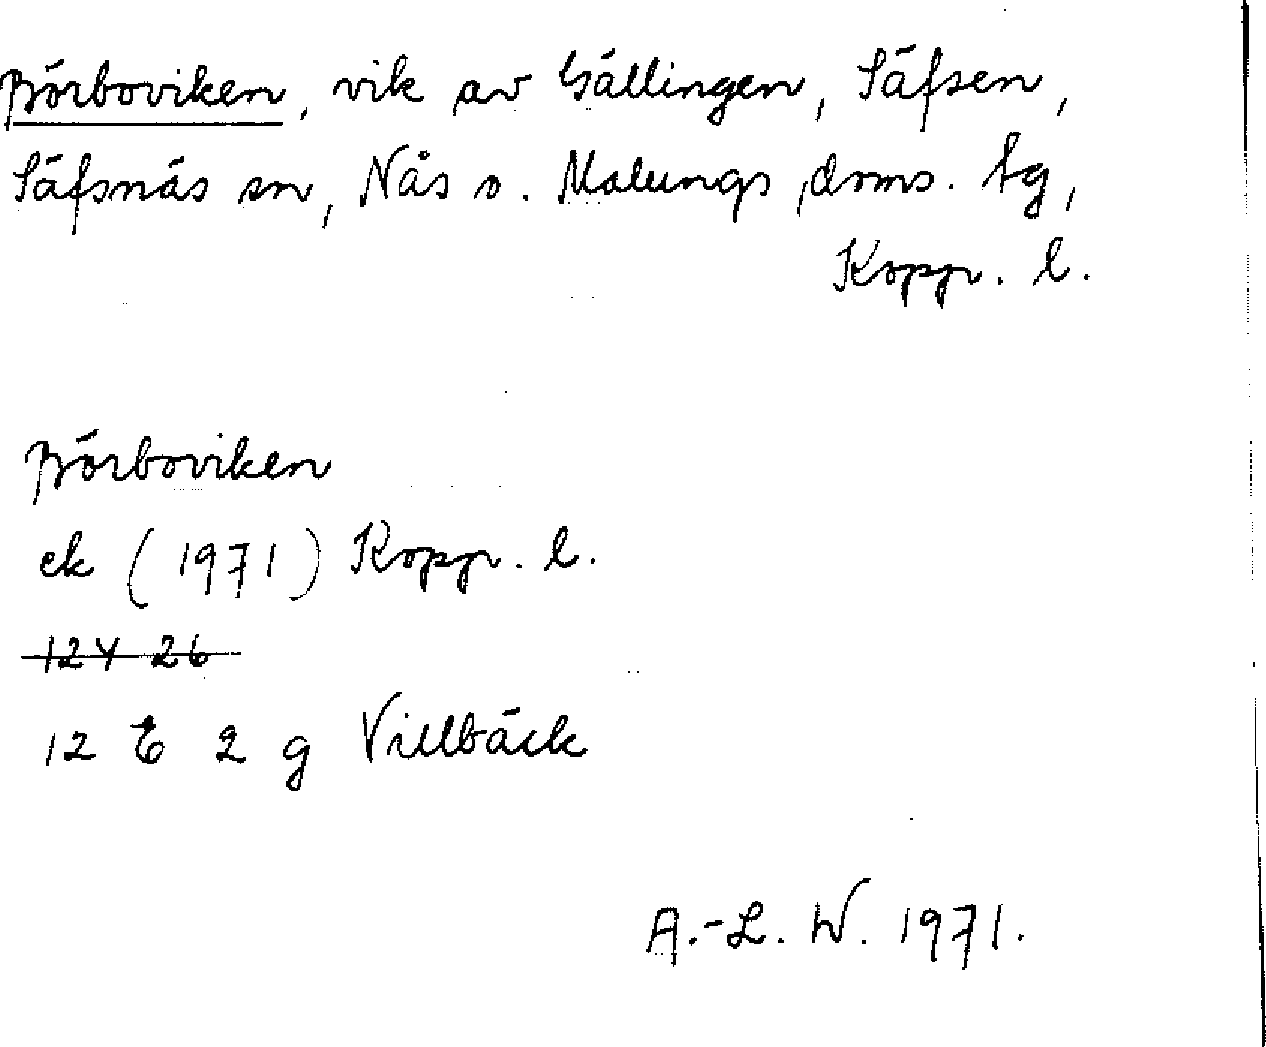 Börboviken, vik av Gällingen, Säfsen,
Säfsnäs sn, Nås o. Malungs doms. tg,
Kopp. l.
Börboviken
ek (1971) Kopp. l.
12Y 26
12 E 2 g Villbäck
A.-L. W. 1971.